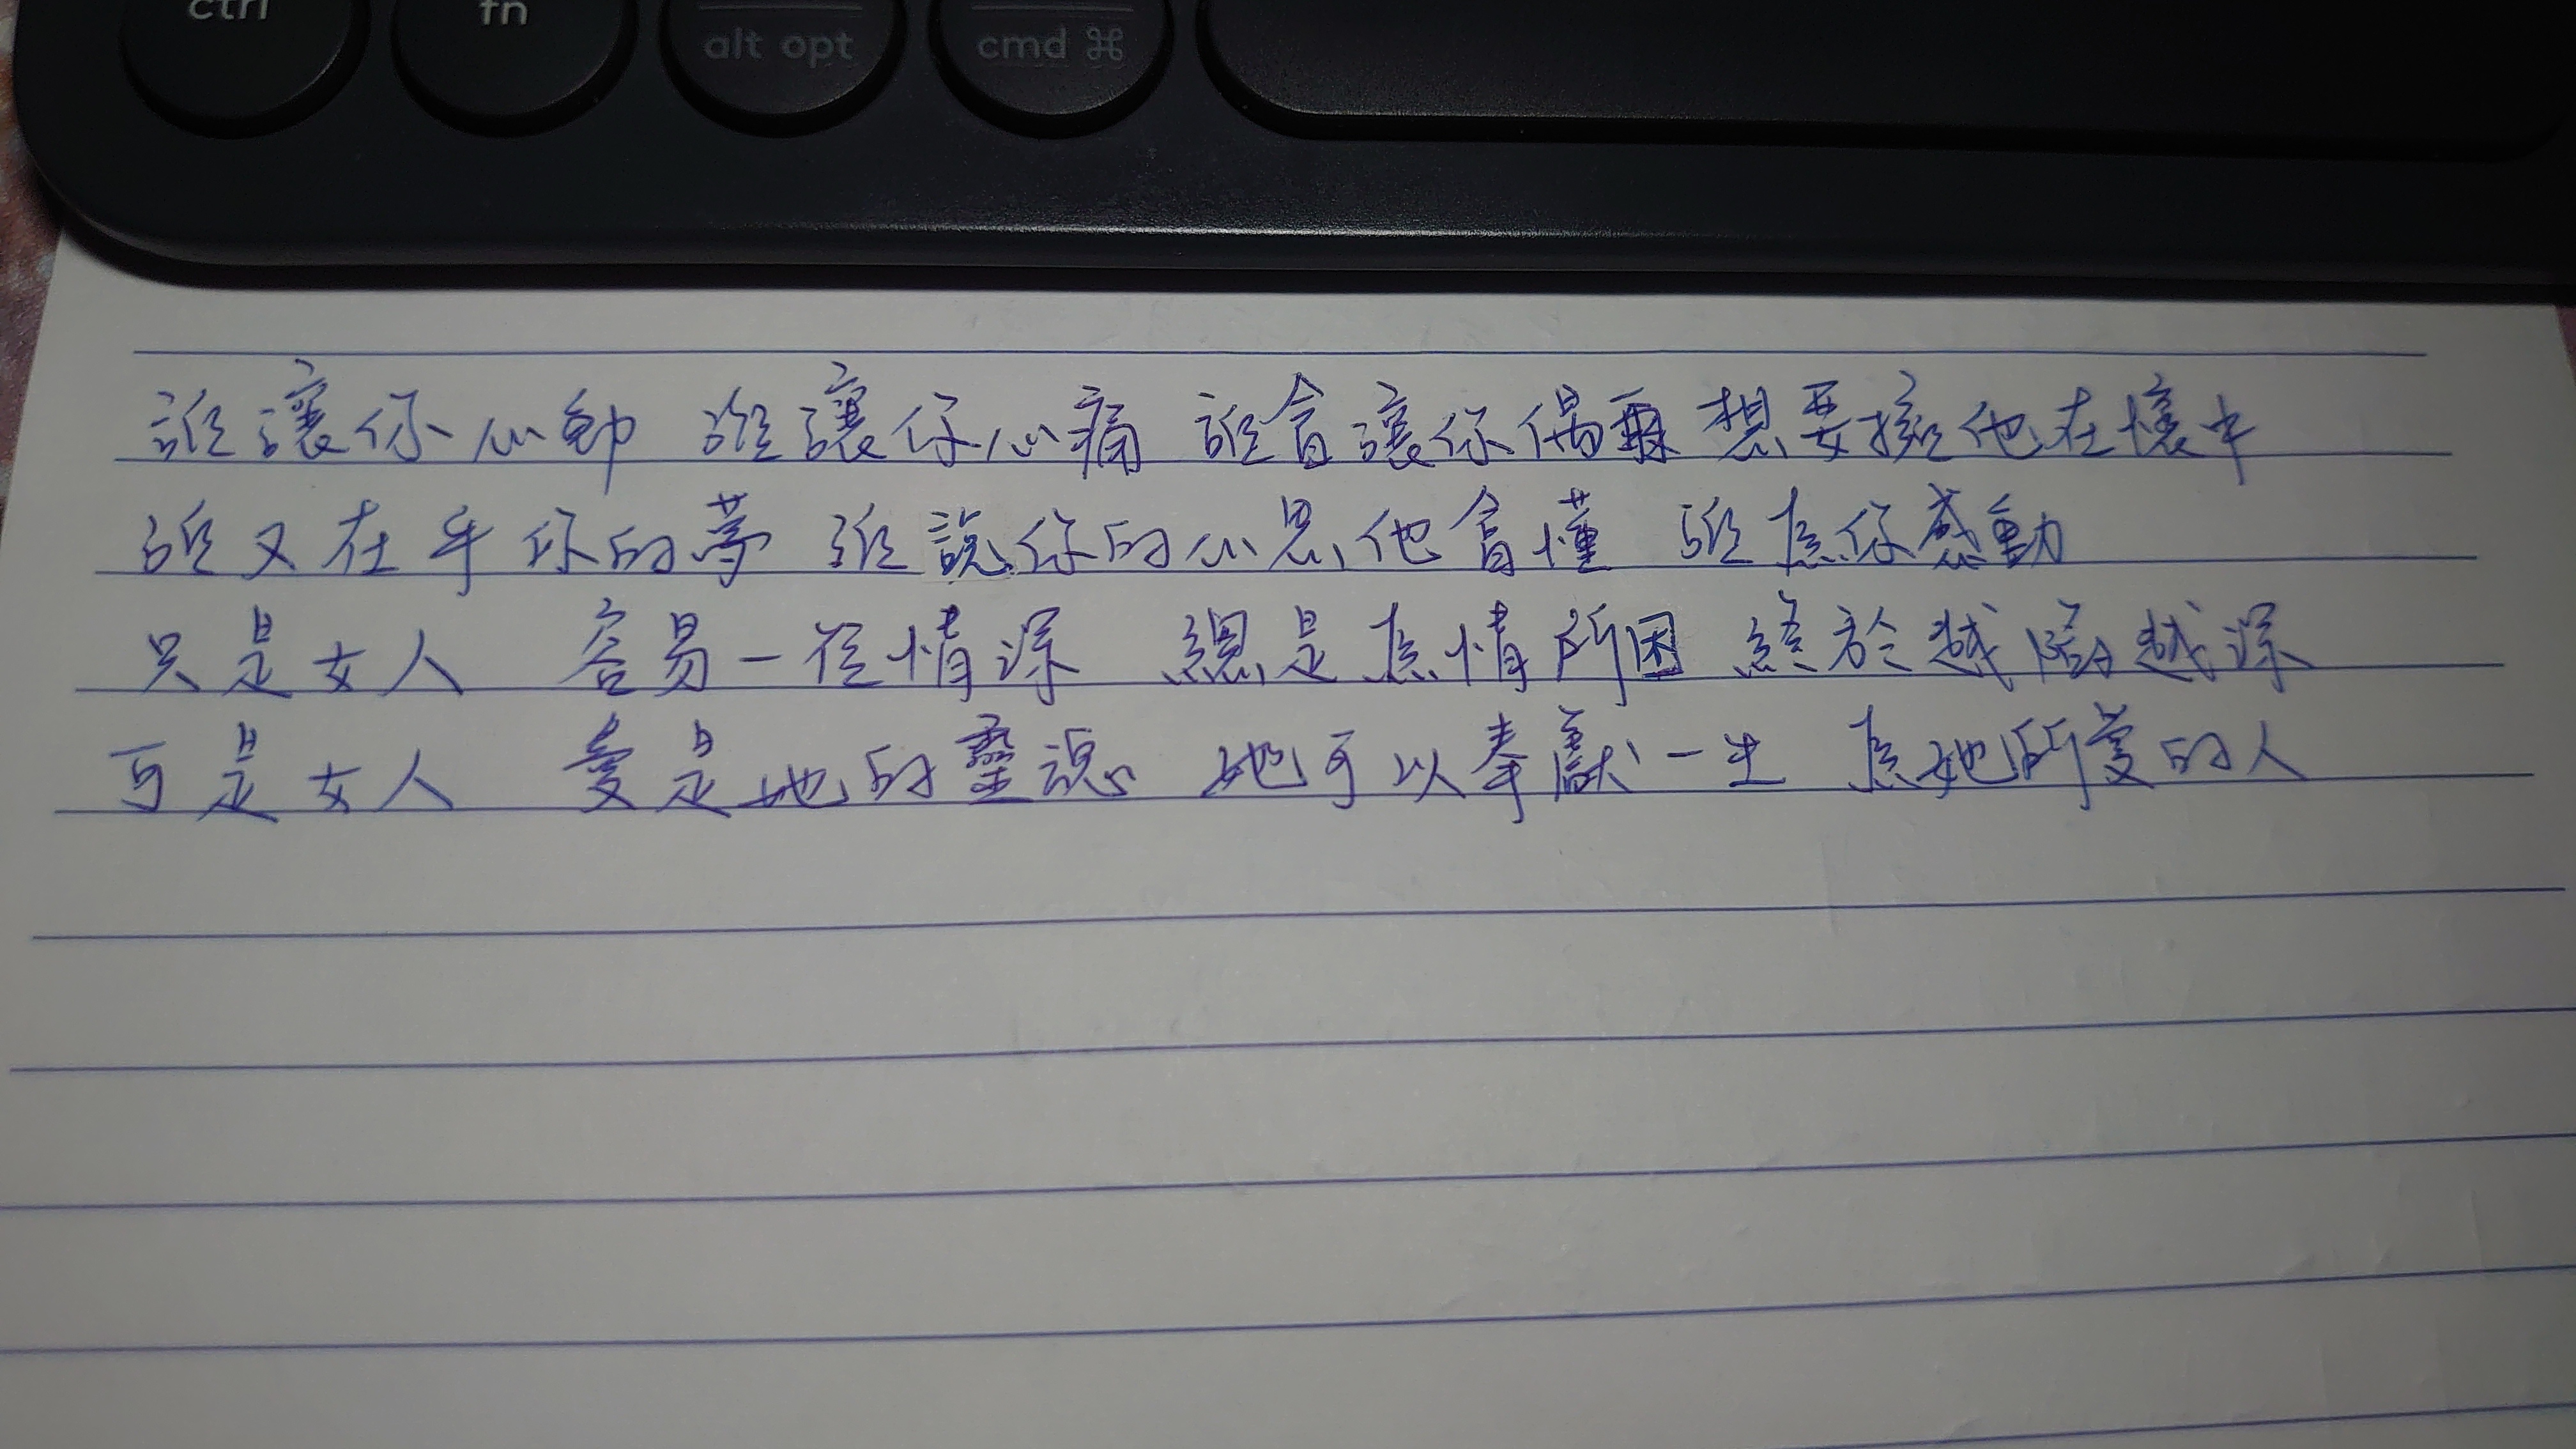 ctrl fn alt opt cmd ⌘
誰讓你心動 誰讓你心痛 誰會讓你偶爾想要擁他在懷中
誰又在乎你的夢 誰說你的心思他會懂 誰為你感動
只是女人 容易一往情深 總是為情所困 終於越陷越深
可是女人 愛是她的靈魂 她可以奉獻一生 為她所愛的人